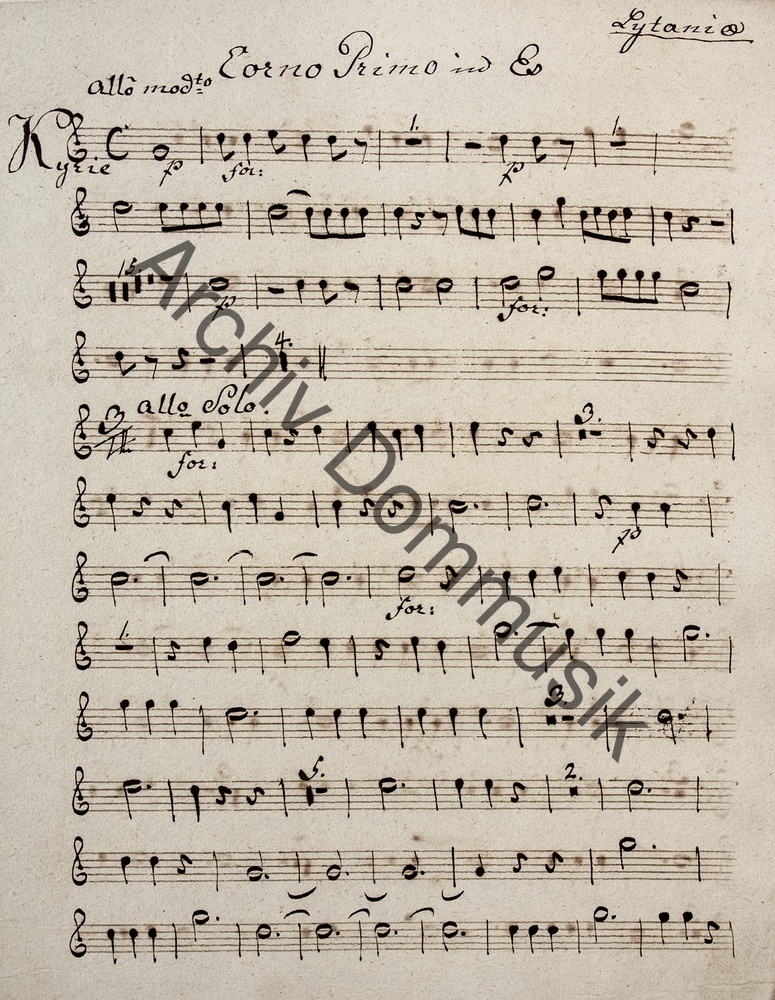 Lytaniæ
Corno Primo in Es
Allo modto
1. 1.
Kyrie p for: p
15.
p for:
4.
3 allo Solo.
3.
for:
p
for:
1.
3.
5. 2.
Archiv Dommusik